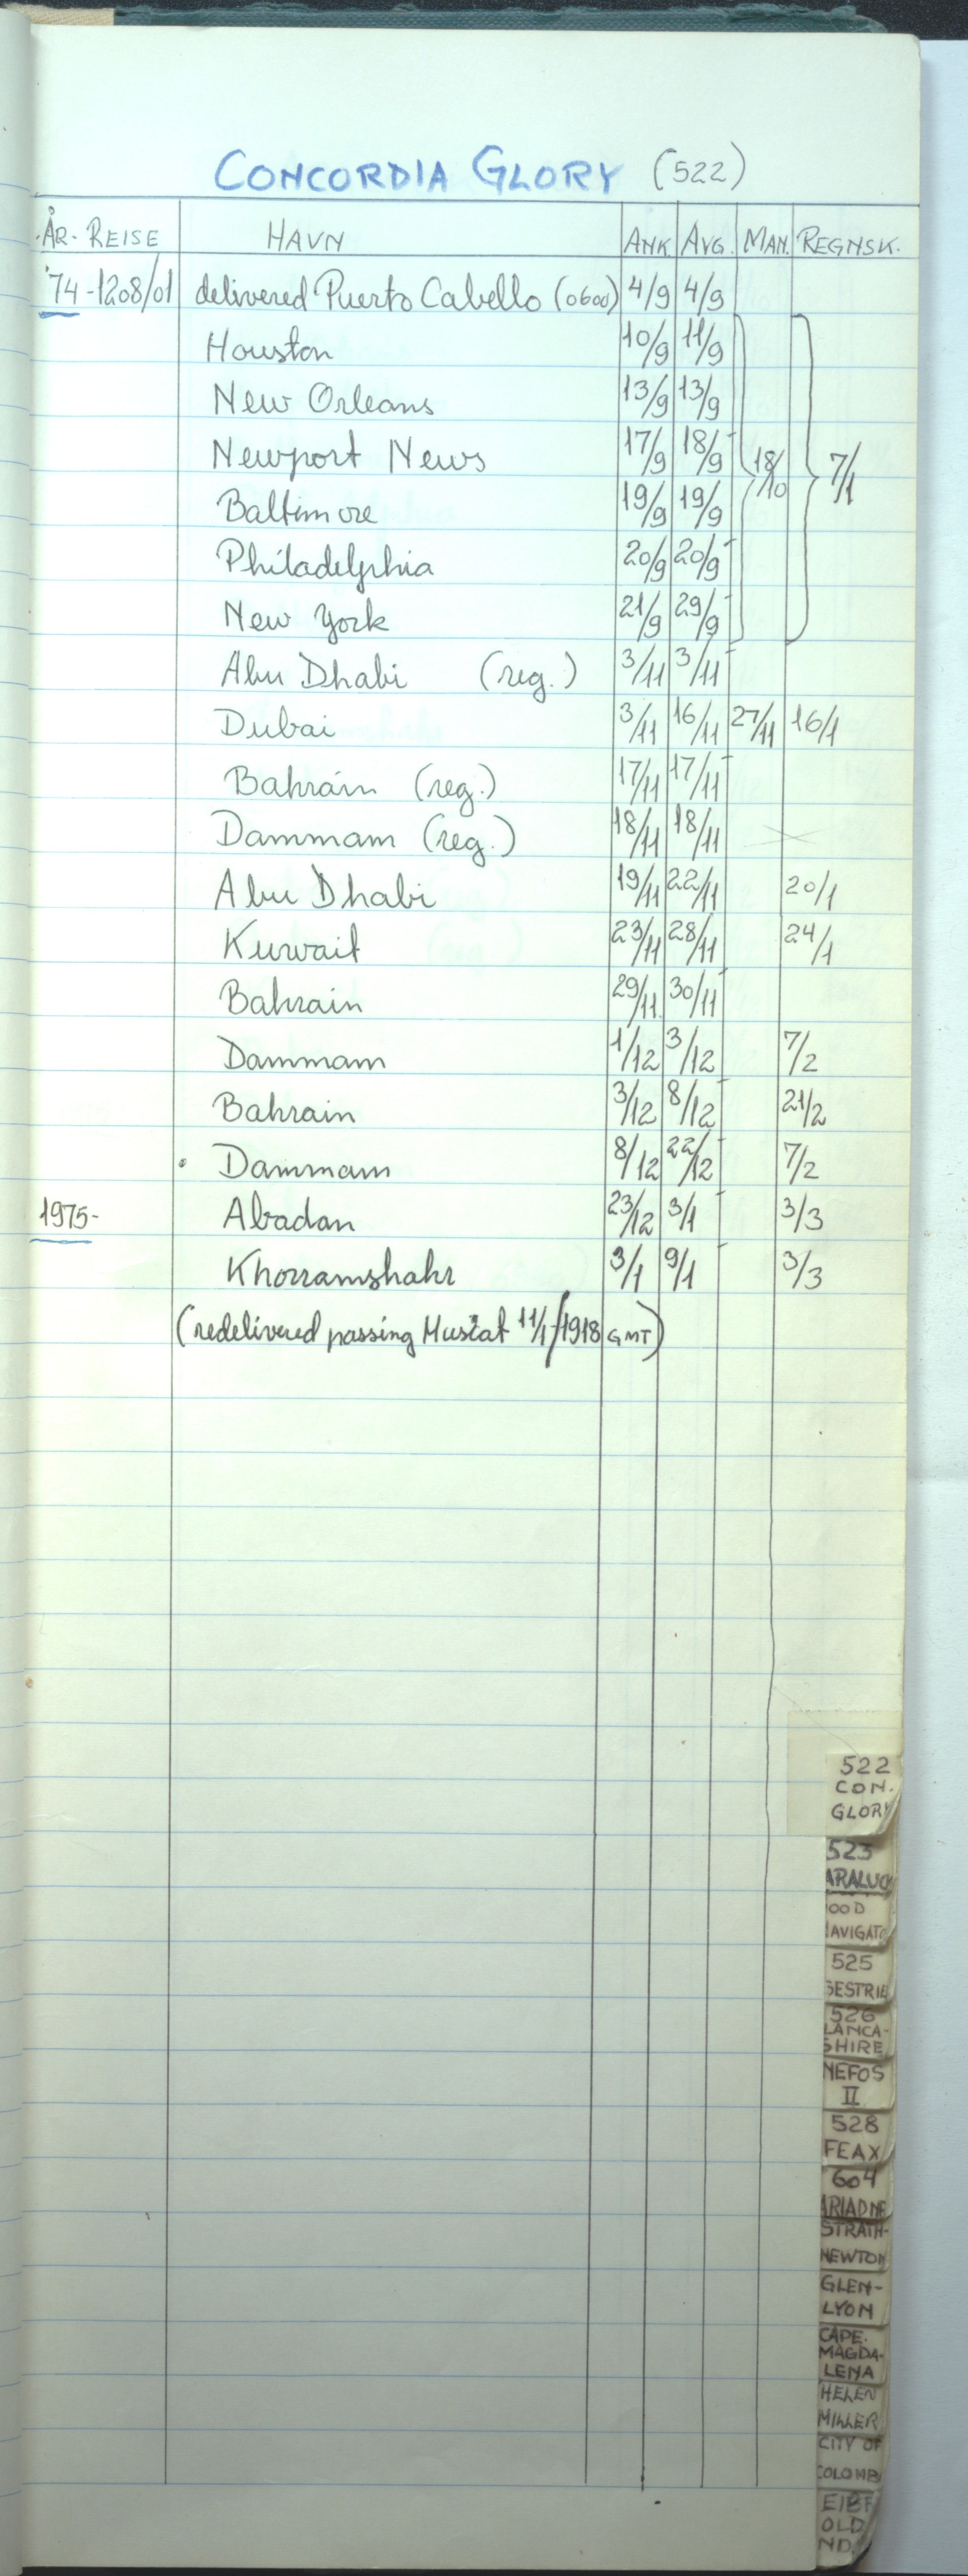 CONCORDIA GLORY (522)
ÅR- REISE HAVN ANK. AVG. MAN. REGNSK.
'74-1208/01 delivered Puerto Cabello (0600) 4/9 4/9
Houston 10/9 11/9
New Orleans 13/9 13/9
Newport News 17/9 18/9 18/10 7/1
Baltimore 19/9 19/9
Philadelphia 20/9 20/9
New York 21/9 29/9
Abu Dhabi (reg.) 3/11 3/11
Dubai 3/11 16/11 27/11 16/1
Bahrain (reg.) 17/11 17/11
Dammam (reg.) 18/11 18/11
Abu Dhabi 19/11 22/11 20/1
Kuwait 23/11 28/11 24/1
Bahrain 29/11 30/11
Dammam 1/12 3/12 7/2
Bahrain 3/12 8/12 21/2
Dammam 8/12 22/12 7/2
1975- Abadan 23/12 3/1 3/3
Khorramshahr 3/1 9/1 3/3
(redelivered passing Muscat 11/1/1918 GMT)
522
CON.
GLORY
523
ARALUC
OOD
AVIGATO
525
SESTRIE
526
LANCA-
SHIRE
NEFOS
II
528
FEAX
604
ARIADNE
STRATH-
NEWTON
GLEN-
LYON
CAPE.
MAGDA-
LENA
HELEN
MILLER
CITY OF
COLOMB
OLD
ND.